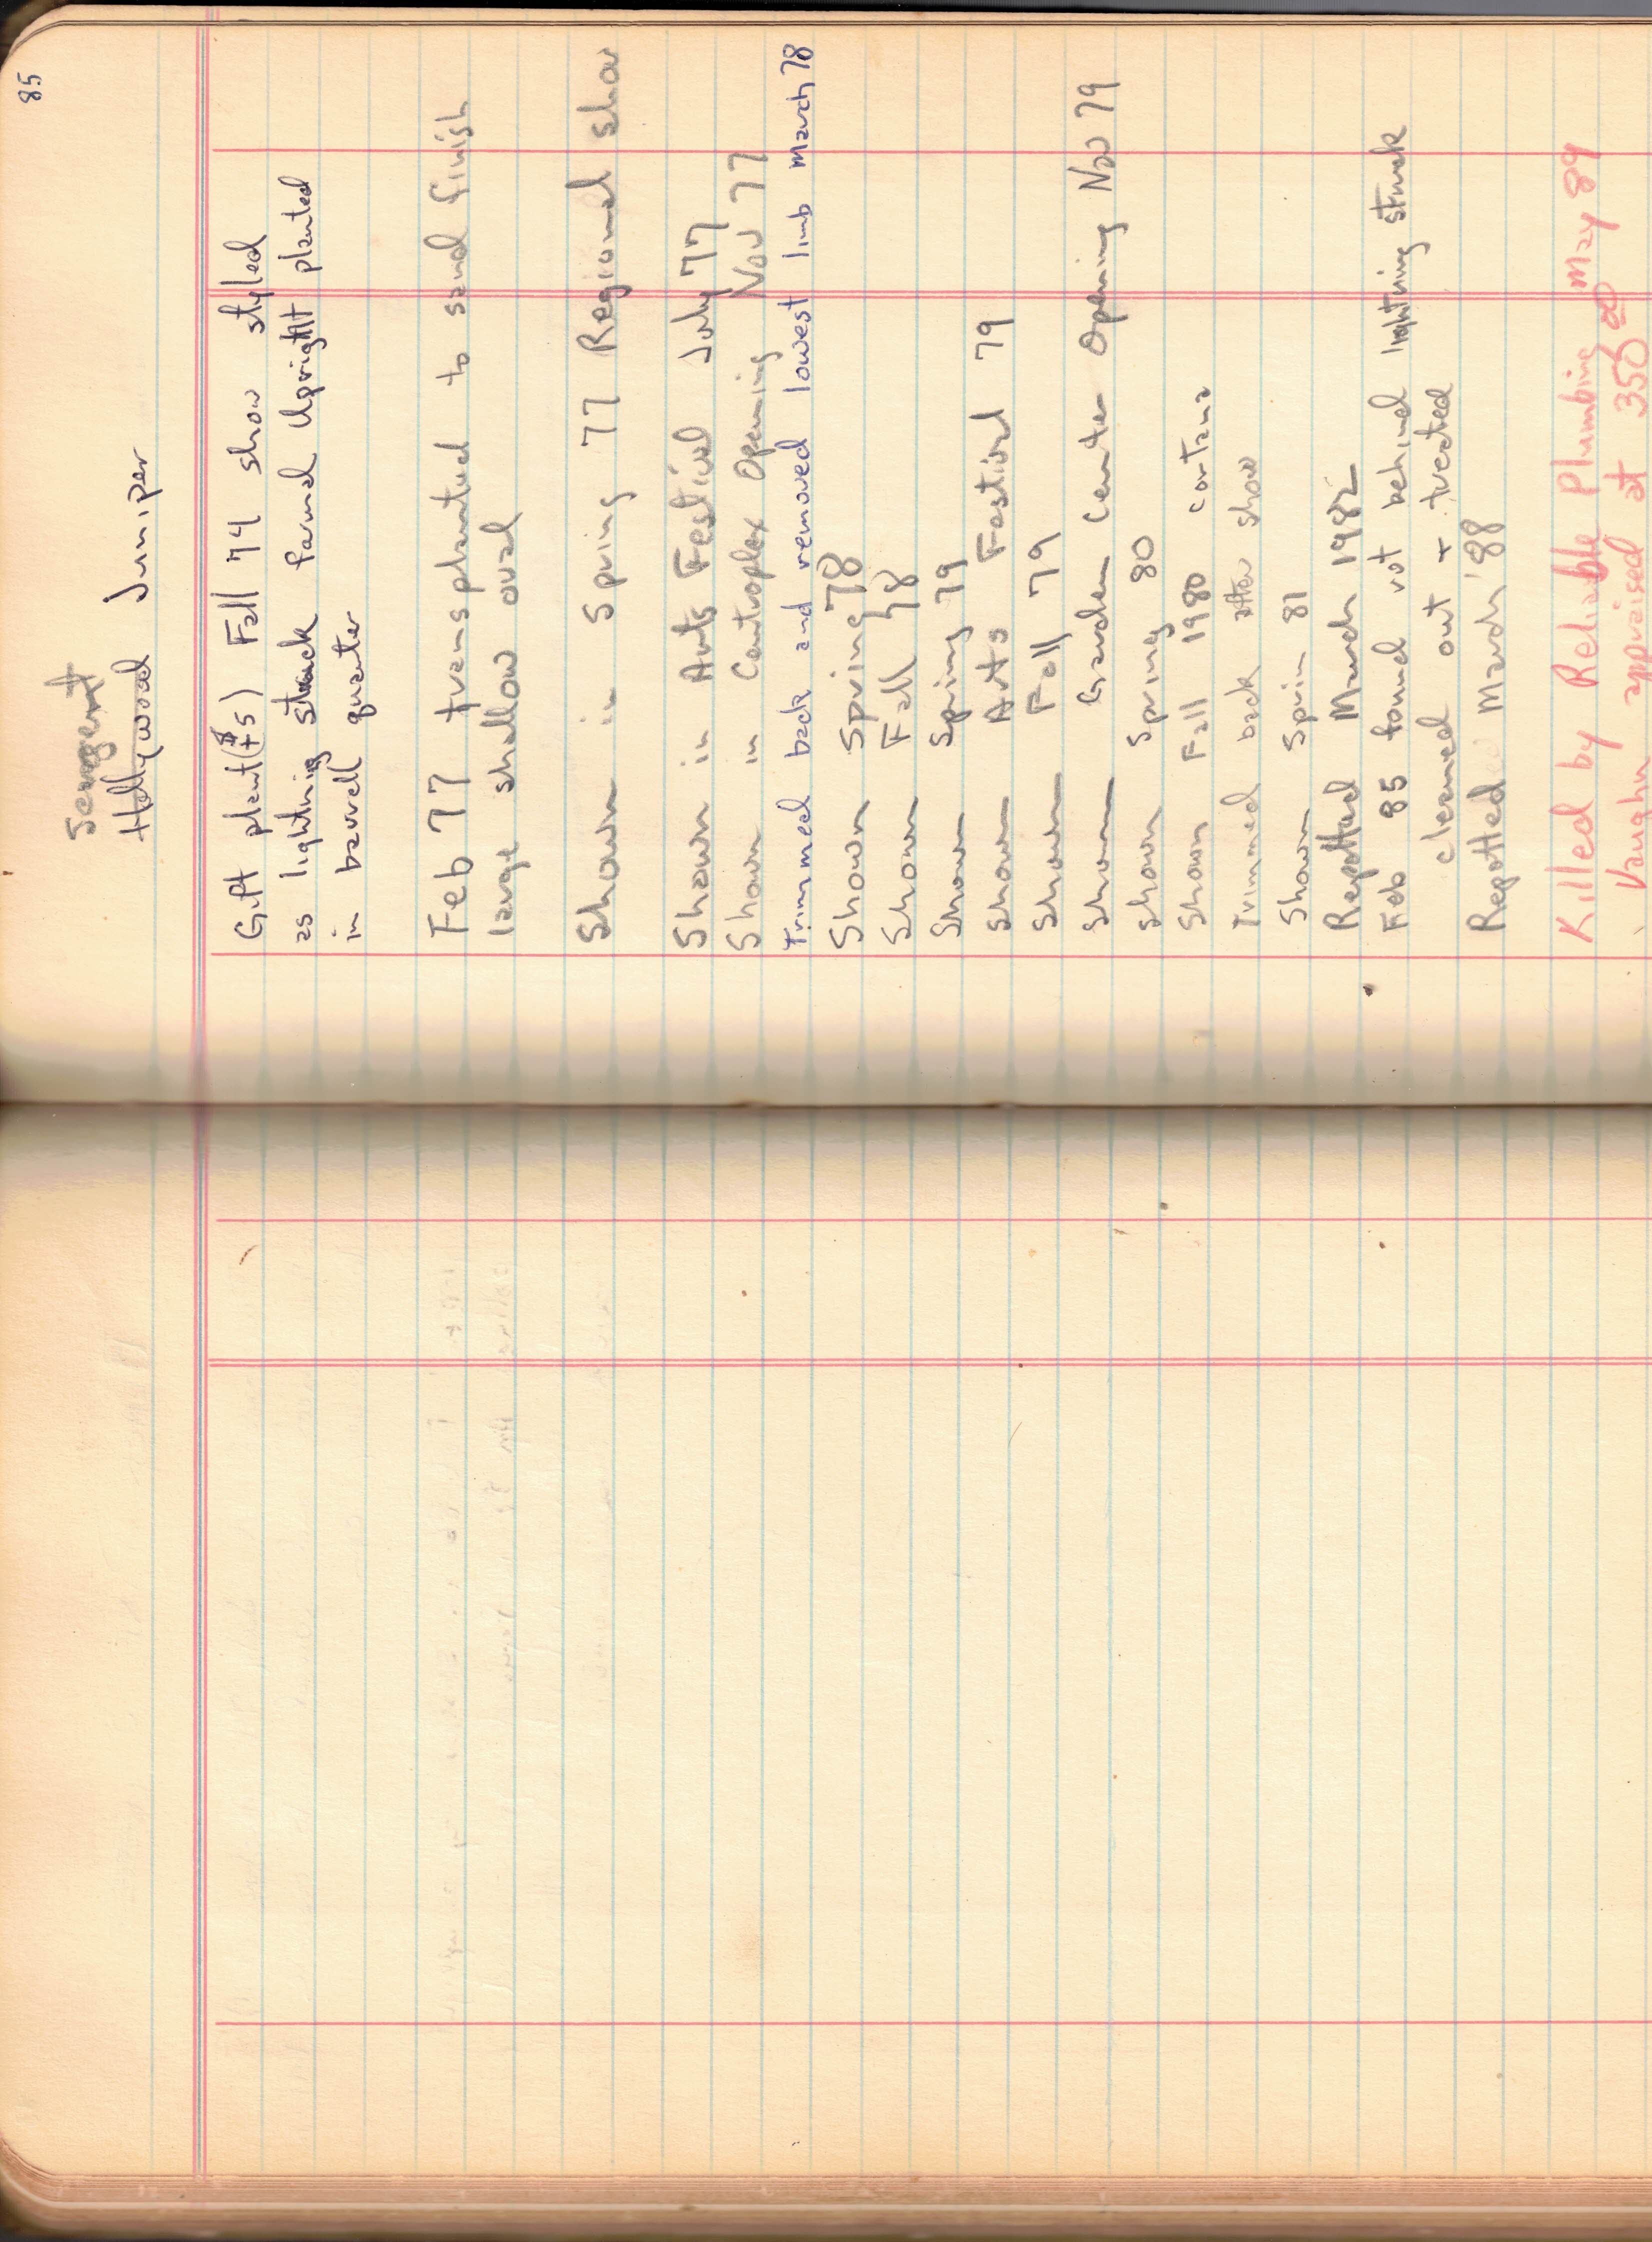 85
Sargent
Hollywood Juniper
Gift plant ($5) Fall 74 show styled
as lightnig struck formal Upright planted
in barrell quarter
Feb 77 transplanted to sand finish
large shallow oval
Shown in Spring 77 Regional show
Shown in Arts Festival July 77
Shown in Centroplex Opening Nov 77
Trimmed back and removed lowest limb March 78
Shown Spring 78
Shown Fall 78
Shown Spring 79
Shown Arts Festival 79
Shown Fall 79
Shown Garden Center Opening Nov 79
Shown Spring 80
Shown Fall 1980 cortana
Trimmed back after show
Shown Sprin 81
Repotted March 1982
Feb 85 found rot behind lightning struck
cleaned out + treated
Repotted March '88
Killed by Reliable Plumbing May 89
Vaughn appraised at 350 00